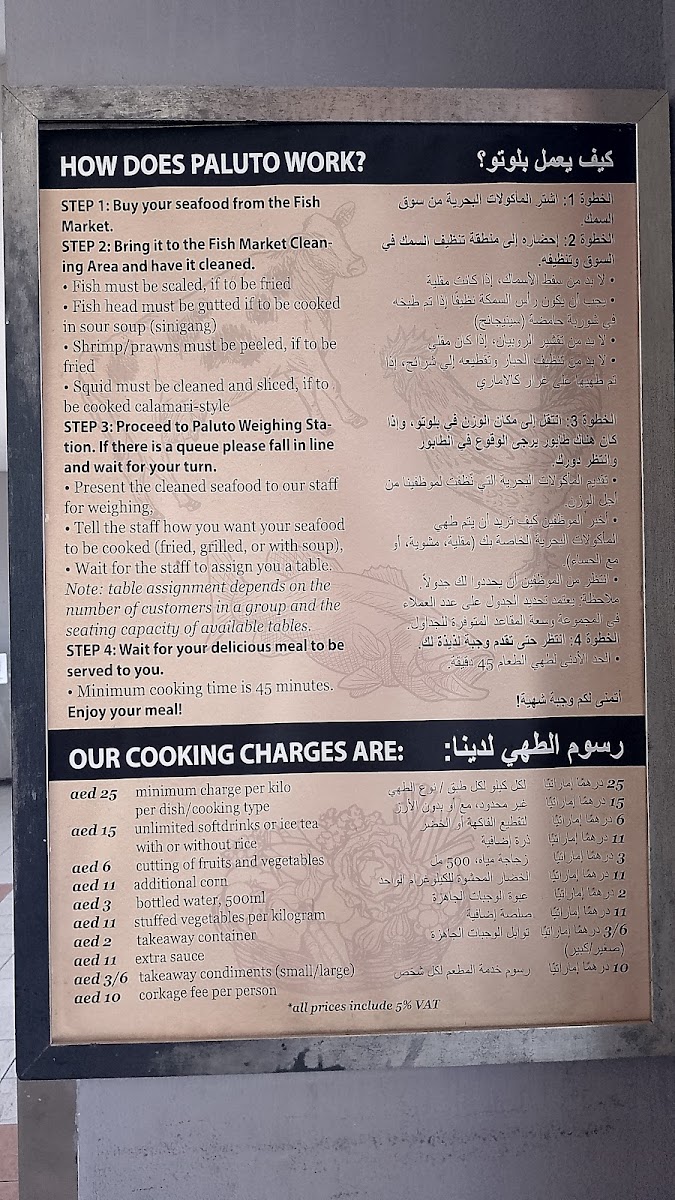 HOW DOES PALUTO WORK?
كيف يعمل بلوتو؟
STEP 1: Buy your seafood from the Fish
Market.
STEP 2: Bring it to the Fish Market Clean-
ing Area and have it cleaned.
• Fish must be scaled, if to be fried
• Fish head must be gutted if to be cooked
in sour soup (sinigang)
• Shrimp/prawns must be peeled, if to be
fried
• Squid must be cleaned and sliced, if to
be cooked calamari-style
STEP 3: Proceed to Paluto Weighing Sta-
tion. If there is a queue please fall in line
and wait for your turn.
• Present the cleaned seafood to our staff
for weighing,
• Tell the staff how you want your seafood
to be cooked (fried, grilled, or with soup),
• Wait for the staff to assign you a table.
Note: table assignment depends on the
number of customers in a group and the
seating capacity of available tables.
STEP 4: Wait for your delicious meal to be
served to you.
• Minimum cooking time is 45 minutes.
Enjoy your meal!
الخطوة 1: اشتر المأكولات البحرية من سوق
السمك.
الخطوة 2: إحضاره إلى منطقة تنظيف السمك في
السوق وتنظيفه.
• لا بد من سقط الأسماك، إذا كانت مقلية
• يجب أن يكون رأس السمكة نظيفًا إذا تم طبخه
في شوربة حامضة (سينيجانج)
• لا بد من تقشير الروبيان، إذا كان مقلي
• لا بد من تنظيف الحبار وتقطيعه إلى شرائح، إذا
تم طهيها على غرار كالاماري
الخطوة 3: انتقل إلى مكان الوزن في بلوتو، وإذا
كان هناك طابور يرجى الوقوع في الطابور
وانتظر دورك.
• تقديم المأكولات البحرية التي نُظفت لموظفينا من
أجل الوزن.
• أخبر الموظفين كيف تريد أن يتم طهي
المأكولات البحرية الخاصة بك (مقلية، مشوية، أو
مع الحساء).
• انتظر من الموظفين أن يحددوا لك جدولاً.
ملاحظة: يعتمد تحديد الجدول على عدد العملاء
في المجموعة وسعة المقاعد المتوفرة للجداول.
الخطوة 4: انتظر حتى تقدم وجبة لذيذة لك.
• الحد الأدنى لطهي الطعام 45 دقيقة.
أتمنى لكم وجبة شهية!
OUR COOKING CHARGES ARE:
رسوم الطهي لدينا:
aed 25 minimum charge per kilo
per dish/cooking type
aed 15 unlimited softdrinks or ice tea
with or without rice
aed 6 cutting of fruits and vegetables
aed 11 additional corn
aed 3 bottled water, 500ml
aed 11 stuffed vegetables per kilogram
aed 2 takeaway container
aed 11 extra sauce
aed 3/6 takeaway condiments (small/large)
aed 10 corkage fee per person
25 درهمًا إماراتيًا لكل كيلو لكل طبق / نوع الطهي
15 درهمًا إماراتيًا غير محدود، مع أو بدون الأرز
6 درهمًا إماراتيًا لتقطيع الفاكهة أو الخضر
11 درهمًا إماراتيًا ذرة إضافية
3 درهمًا إماراتيًا زجاجة مياه، 500 مل
11 درهمًا إماراتيًا الخضار المحشوة للكيلوغرام الواحد
2 درهمًا إماراتيًا عبوة الوجبات الجاهزة
11 درهمًا إماراتيًا صلصة إضافية
3/6 درهمًا إماراتيًا توابل الوجبات الجاهزة
(صغير/كبير)
10 درهمًا إماراتيًا رسوم خدمة المطعم لكل شخص
*all prices include 5% VAT